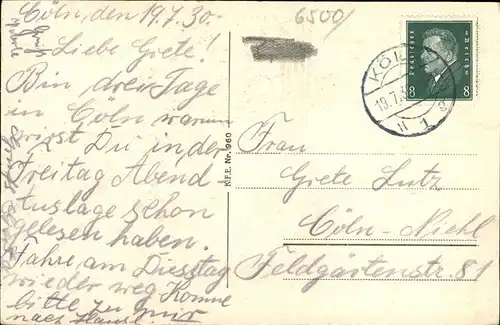 Cöln, den 19.7.30.
6500/
Liebe Grete!
Bin drei Tage
in Cöln warum
wirst Du in der
Freitag Abend-
Auslage schon
gelesen haben.
Fahre am Diestag
wieder weg Komme
bitte zu mir
nach Hause.
Gruß
N.F.E. Nr. 960
Deutsches Reich
8 8
KÖLN
19.7.3
11
Frau
Grete Lutz
Cöln-Niehl
Feldgärtenstr. 81